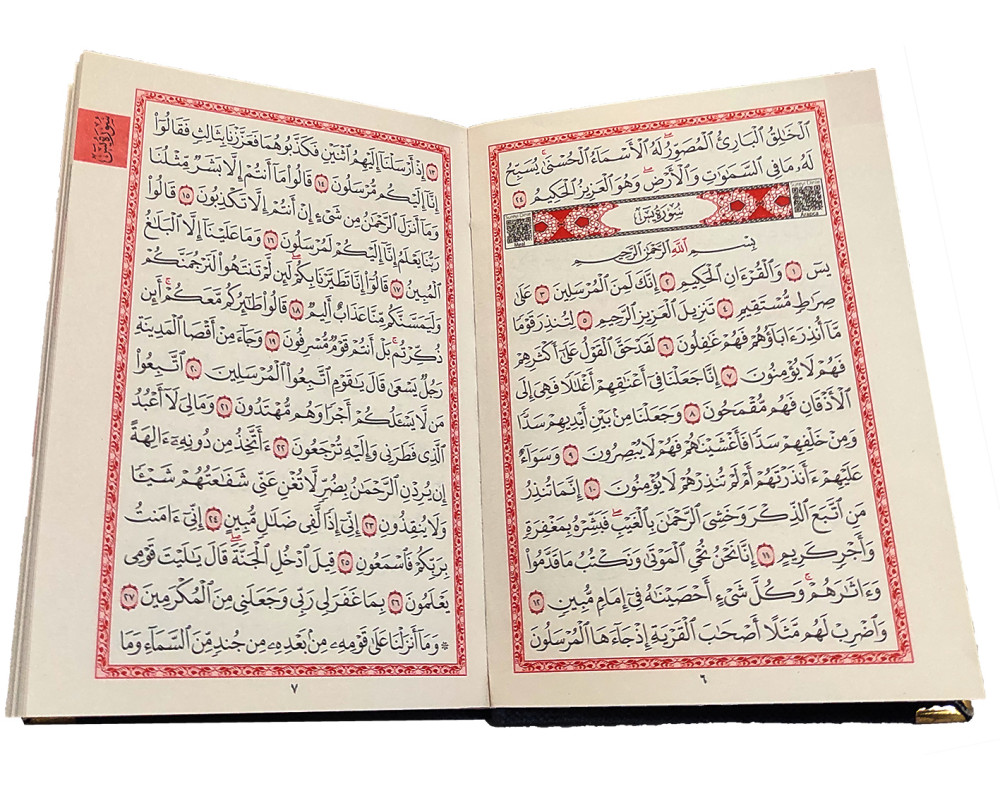 الْخَٰلِقُ الْبَارِئُ الْمُصَوِّرُ لَهُ الْأَسْمَاءُ الْحُسْنَىٰ يُسَبِّحُ
لَهُ مَا فِي السَّمَٰوَاتِ وَالْأَرْضِ وَهُوَ الْعَزِيزُ الْحَكِيمُ ٢٤
سُورَةُ يسٓ
بِسْمِ اللَّهِ الرَّحْمَٰنِ الرَّحِيمِ
يسٓ ١ وَالْقُرْءَانِ الْحَكِيمِ ٢ إِنَّكَ لَمِنَ الْمُرْسَلِينَ ٣ عَلَىٰ
صِرَٰطٍ مُّسْتَقِيمٍ ٤ تَنزِيلَ الْعَزِيزِ الرَّحِيمِ ٥ لِتُنذِرَ قَوْمًا
مَّا أُنذِرَ ءَابَاؤُهُمْ فَهُمْ غَٰفِلُونَ ٦ لَقَدْ حَقَّ الْقَوْلُ عَلَىٰ أَكْثَرِهِمْ
فَهُمْ لَا يُؤْمِنُونَ ٧ إِنَّا جَعَلْنَا فِي أَعْنَٰقِهِمْ أَغْلَٰلًا فَهِيَ إِلَى
الْأَذْقَانِ فَهُم مُّقْمَحُونَ ٨ وَجَعَلْنَا مِنۢ بَيْنِ أَيْدِيهِمْ سَدًّا
وَمِنْ خَلْفِهِمْ سَدًّا فَأَغْشَيْنَٰهُمْ فَهُمْ لَا يُبْصِرُونَ ٩ وَسَوَاءٌ
عَلَيْهِمْ ءَأَنذَرْتَهُمْ أَمْ لَمْ تُنذِرْهُمْ لَا يُؤْمِنُونَ ١٠ إِنَّمَا تُنذِرُ
مَنِ اتَّبَعَ الذِّكْرَ وَخَشِيَ الرَّحْمَٰنَ بِالْغَيْبِ فَبَشِّرْهُ بِمَغْفِرَةٍ
وَأَجْرٍ كَرِيمٍ ١١ إِنَّا نَحْنُ نُحْيِ الْمَوْتَىٰ وَنَكْتُبُ مَا قَدَّمُوا
وَءَاثَٰرَهُمْ وَكُلَّ شَيْءٍ أَحْصَيْنَٰهُ فِي إِمَامٍ مُّبِينٍ ١٢
وَاضْرِبْ لَهُم مَّثَلًا أَصْحَٰبَ الْقَرْيَةِ إِذْ جَاءَهَا الْمُرْسَلُونَ
٦
سُورَةُ يسٓ
إِذْ أَرْسَلْنَا إِلَيْهِمُ اثْنَيْنِ فَكَذَّبُوهُمَا فَعَزَّزْنَا بِثَالِثٍ فَقَالُوا
١٣
إِنَّا إِلَيْكُم مُّرْسَلُونَ ١٤ قَالُوا مَا أَنتُمْ إِلَّا بَشَرٌ مِّثْلُنَا
وَمَا أَنزَلَ الرَّحْمَٰنُ مِن شَيْءٍ إِنْ أَنتُمْ إِلَّا تَكْذِبُونَ ١٥ قَالُوا
رَبُّنَا يَعْلَمُ إِنَّا إِلَيْكُمْ لَمُرْسَلُونَ ١٦ وَمَا عَلَيْنَا إِلَّا الْبَلَٰغُ
الْمُبِينُ ١٧ قَالُوا إِنَّا تَطَيَّرْنَا بِكُمْ لَئِن لَّمْ تَنتَهُوا لَنَرْجُمَنَّكُمْ
وَلَيَمَسَّنَّكُم مِّنَّا عَذَابٌ أَلِيمٌ ١٨ قَالُوا طَٰئِرُكُم مَّعَكُمْ أَئِن
ذُكِّرْتُم بَلْ أَنتُمْ قَوْمٌ مُّسْرِفُونَ ١٩ وَجَاءَ مِنْ أَقْصَا الْمَدِينَةِ
رَجُلٌ يَسْعَىٰ قَالَ يَٰقَوْمِ اتَّبِعُوا الْمُرْسَلِينَ ٢٠ اتَّبِعُوا
مَن لَّا يَسْـَٔلُكُمْ أَجْرًا وَهُم مُّهْتَدُونَ ٢١ وَمَا لِيَ لَا أَعْبُدُ
الَّذِي فَطَرَنِي وَإِلَيْهِ تُرْجَعُونَ ٢٢ ءَأَتَّخِذُ مِن دُونِهِ ءَالِهَةً
إِن يُرِدْنِ الرَّحْمَٰنُ بِضُرٍّ لَّا تُغْنِ عَنِّي شَفَٰعَتُهُمْ شَيْـًٔا
وَلَا يُنقِذُونِ ٢٣ إِنِّي إِذًا لَّفِي ضَلَٰلٍ مُّبِينٍ ٢٤ إِنِّي ءَامَنتُ
بِرَبِّكُمْ فَاسْمَعُونِ ٢٥ قِيلَ ادْخُلِ الْجَنَّةَ قَالَ يَٰلَيْتَ قَوْمِي
يَعْلَمُونَ ٢٦ بِمَا غَفَرَ لِي رَبِّي وَجَعَلَنِي مِنَ الْمُكْرَمِينَ ٢٧
* وَمَا أَنزَلْنَا عَلَىٰ قَوْمِهِ مِنۢ بَعْدِهِ مِن جُندٍ مِّنَ السَّمَاءِ وَمَا
٧